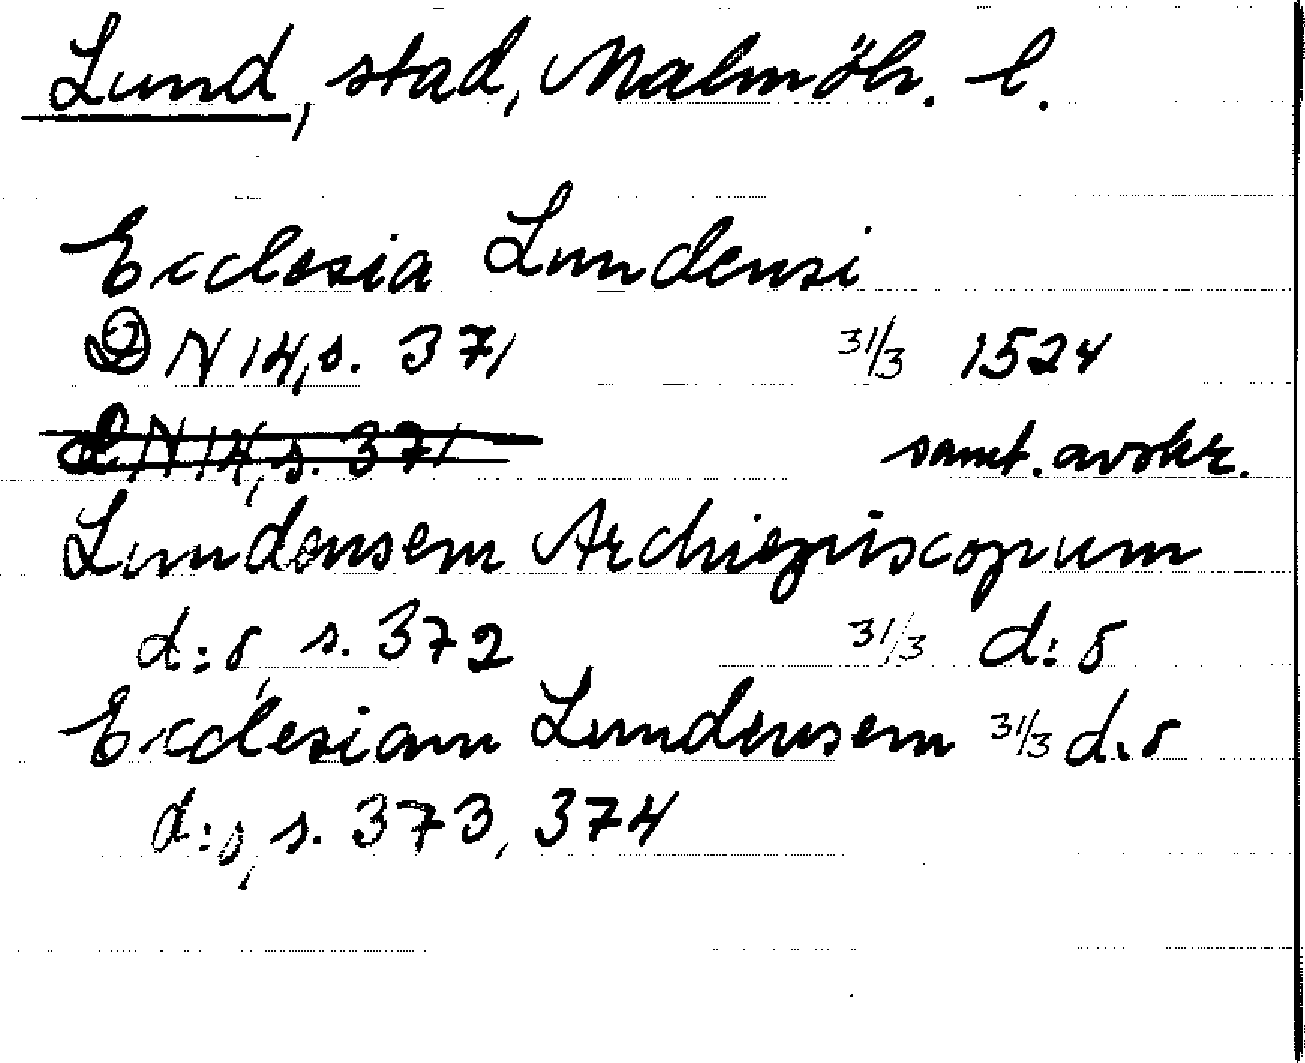 Lund, stad, Malmöh. l.
Ecclesia Lundensi
DN 14, s. 371 31/3 1524
DN 14, s. 371 samt. avskr.
Lundensem Archiepiscopum
d:o, s. 372 31/3 d:o
Ecclesiam Lundensem 31/3 d:o
d:o, s. 373, 374